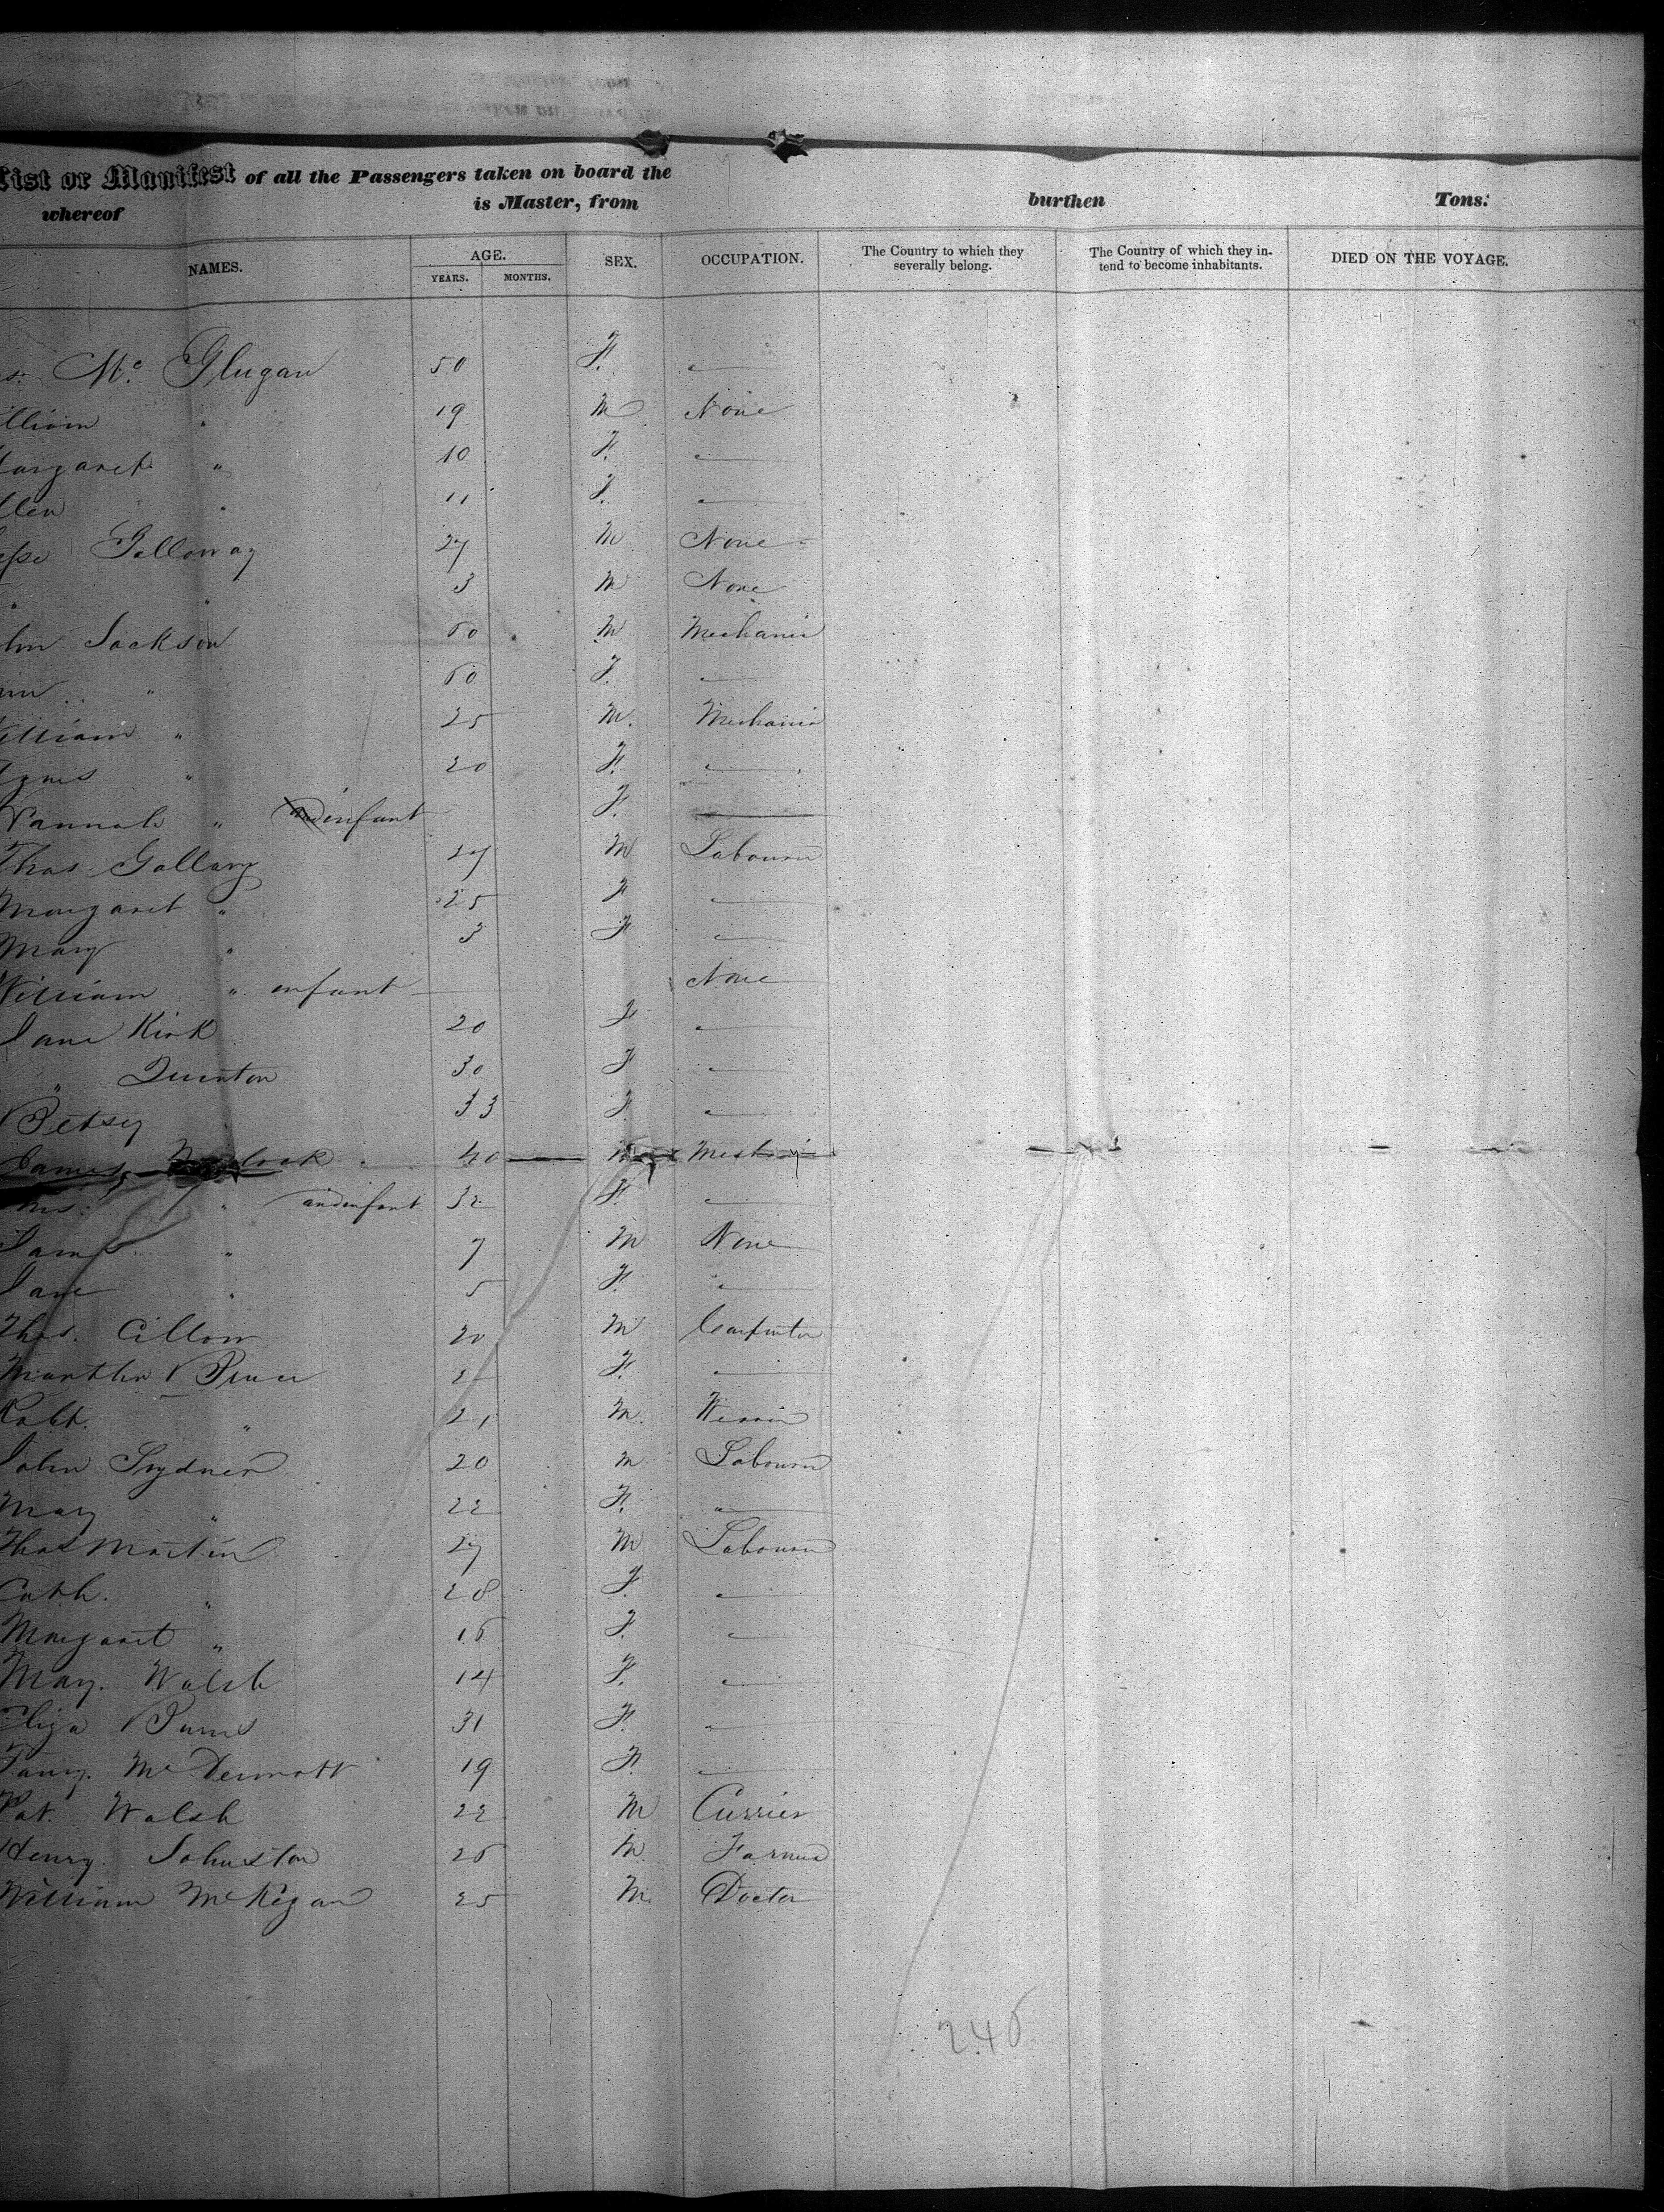 List or Manifest of all the Passengers taken on board the
whereof is Master, from burthen Tons:
NAMES. AGE. SEX. OCCUPATION. The Country to which they severally belong. The Country of which they intend to become inhabitants. DIED ON THE VOYAGE.
YEARS. MONTHS.
Mc. Glugan 50 F. "
illiam " 19 M None
argaret " 10 F. "
llen " 11 F. "
Galloway 27 M None
" " 3 M None
ohn Jackson 60 M Mechanic
" 60 F. "
William " 25 M. Mechanic
Agnes " 20 F. "
Hannah " infant F.
Thos Gallary 27 M Labourer
Margaret " 25 F "
Mary " 3 F "
William " infant None
Jane Kirk 20 F "
" Quinton 30 F "
Betsy 33 F "
James 40
Mrs. " and infant 32 F. "
James " 7 M None
Jane " 5 F. "
Thos. 20 M Carpenter
Martha Bruce F. "
Robt. " 21 M.
John Sydner 20 M Labourer
Mary " 22 F. "
Thos Martin 27 M Labourer
Cath. " 28 F. "
Margaret " 16 F. "
Mary. Walsh 14 F. "
Eliza Burns 31 F. "
Fanny. McDermott 19 F. "
Pat. Walsh 22 M Currier
Henry. Johnston 26 M. Farmer
William McKegan 25 M. Doctor
246